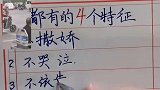 都有的4个特征
撒娇
2 不哭泣
不依